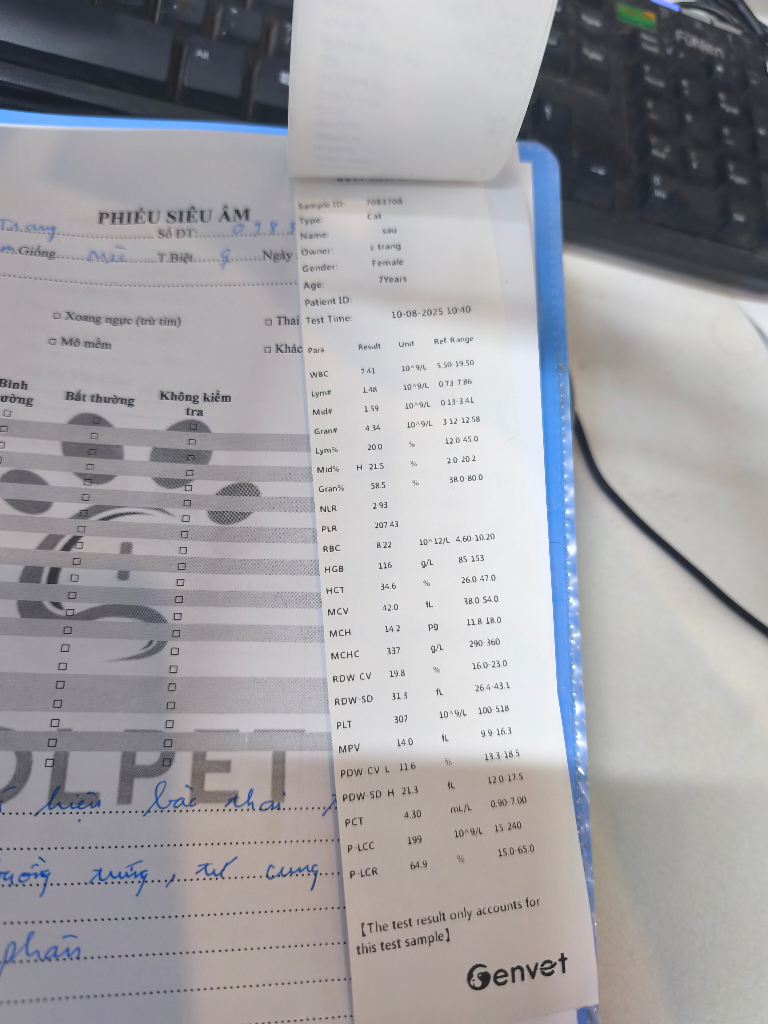 Alt
Fühlen
PHIẾU SIÊU ÂM
Trang Số ĐT: 098.3
Giống Mèo T.Biệt Ngày
□ Xoang ngực (trừ tim) □ Thai
□ Mô mềm □ Khác
Bình ường Bất thường Không kiểm tra
OLPET
hiện bào thai
trứng, tử cung
phần
Sample ID: 7081708
Type: Cat
Name: sau
Owner: c trang
Gender: Female
Age: 7Years
Patient ID:
Test Time: 10-08-2025 10:40
Para Result Unit Ref Range
WBC 7.41 10^9/L 5.50-19.50
Lym# 1.48 10^9/L 0.73-7.86
Mid# 1.59 10^9/L 0.13-3.41
Gran# 4.34 10^9/L 3.12-12.58
Lym% 20.0 % 12.0-45.0
Mid% H 21.5 % 2.0-20.2
Gran% 58.5 % 38.0-80.0
NLR 2.93
PLR 207.43
RBC 8.22 10^12/L 4.60-10.20
HGB 116 g/L 85-153
HCT 34.6 % 26.0-47.0
MCV 42.0 fL 38.0-54.0
MCH 14.2 pg 11.8-18.0
MCHC 337 g/L 290-360
RDW-CV 19.8 % 16.0-23.0
RDW-SD 31.3 fL 26.4-43.1
PLT 307 10^9/L 100-518
MPV 14.0 fL 9.9-16.3
PDW-CV L 11.6 % 13.3-18.5
PDW-SD H 21.3 fL 12.0-17.5
PCT 4.30 mL/L 0.90-7.00
P-LCC 199 10^9/L 15-240
P-LCR 64.9 % 15.0-65.0
【The test result only accounts for
this test sample】
Genvet